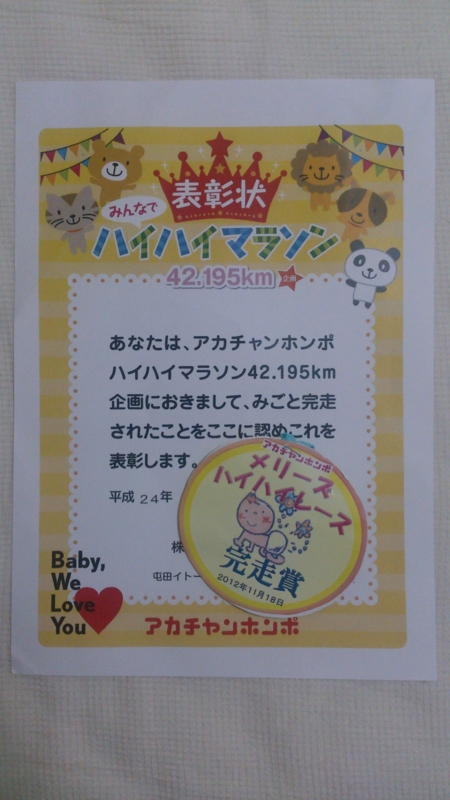 表彰状
みんなで
ハイハイマラソン
42.195km
企画
あなたは、アカチャンホンポ
ハイハイマラソン42.195km
企画におきまして、みごと完走
されたことをここに認めこれを
表彰します。
平成 24年
株
屯田イトー
アカチャンホンポ
メリーズ
ハイハイレース
完走賞
2012年11月18日
Baby,
We
Love
You
アカチャンホンポ